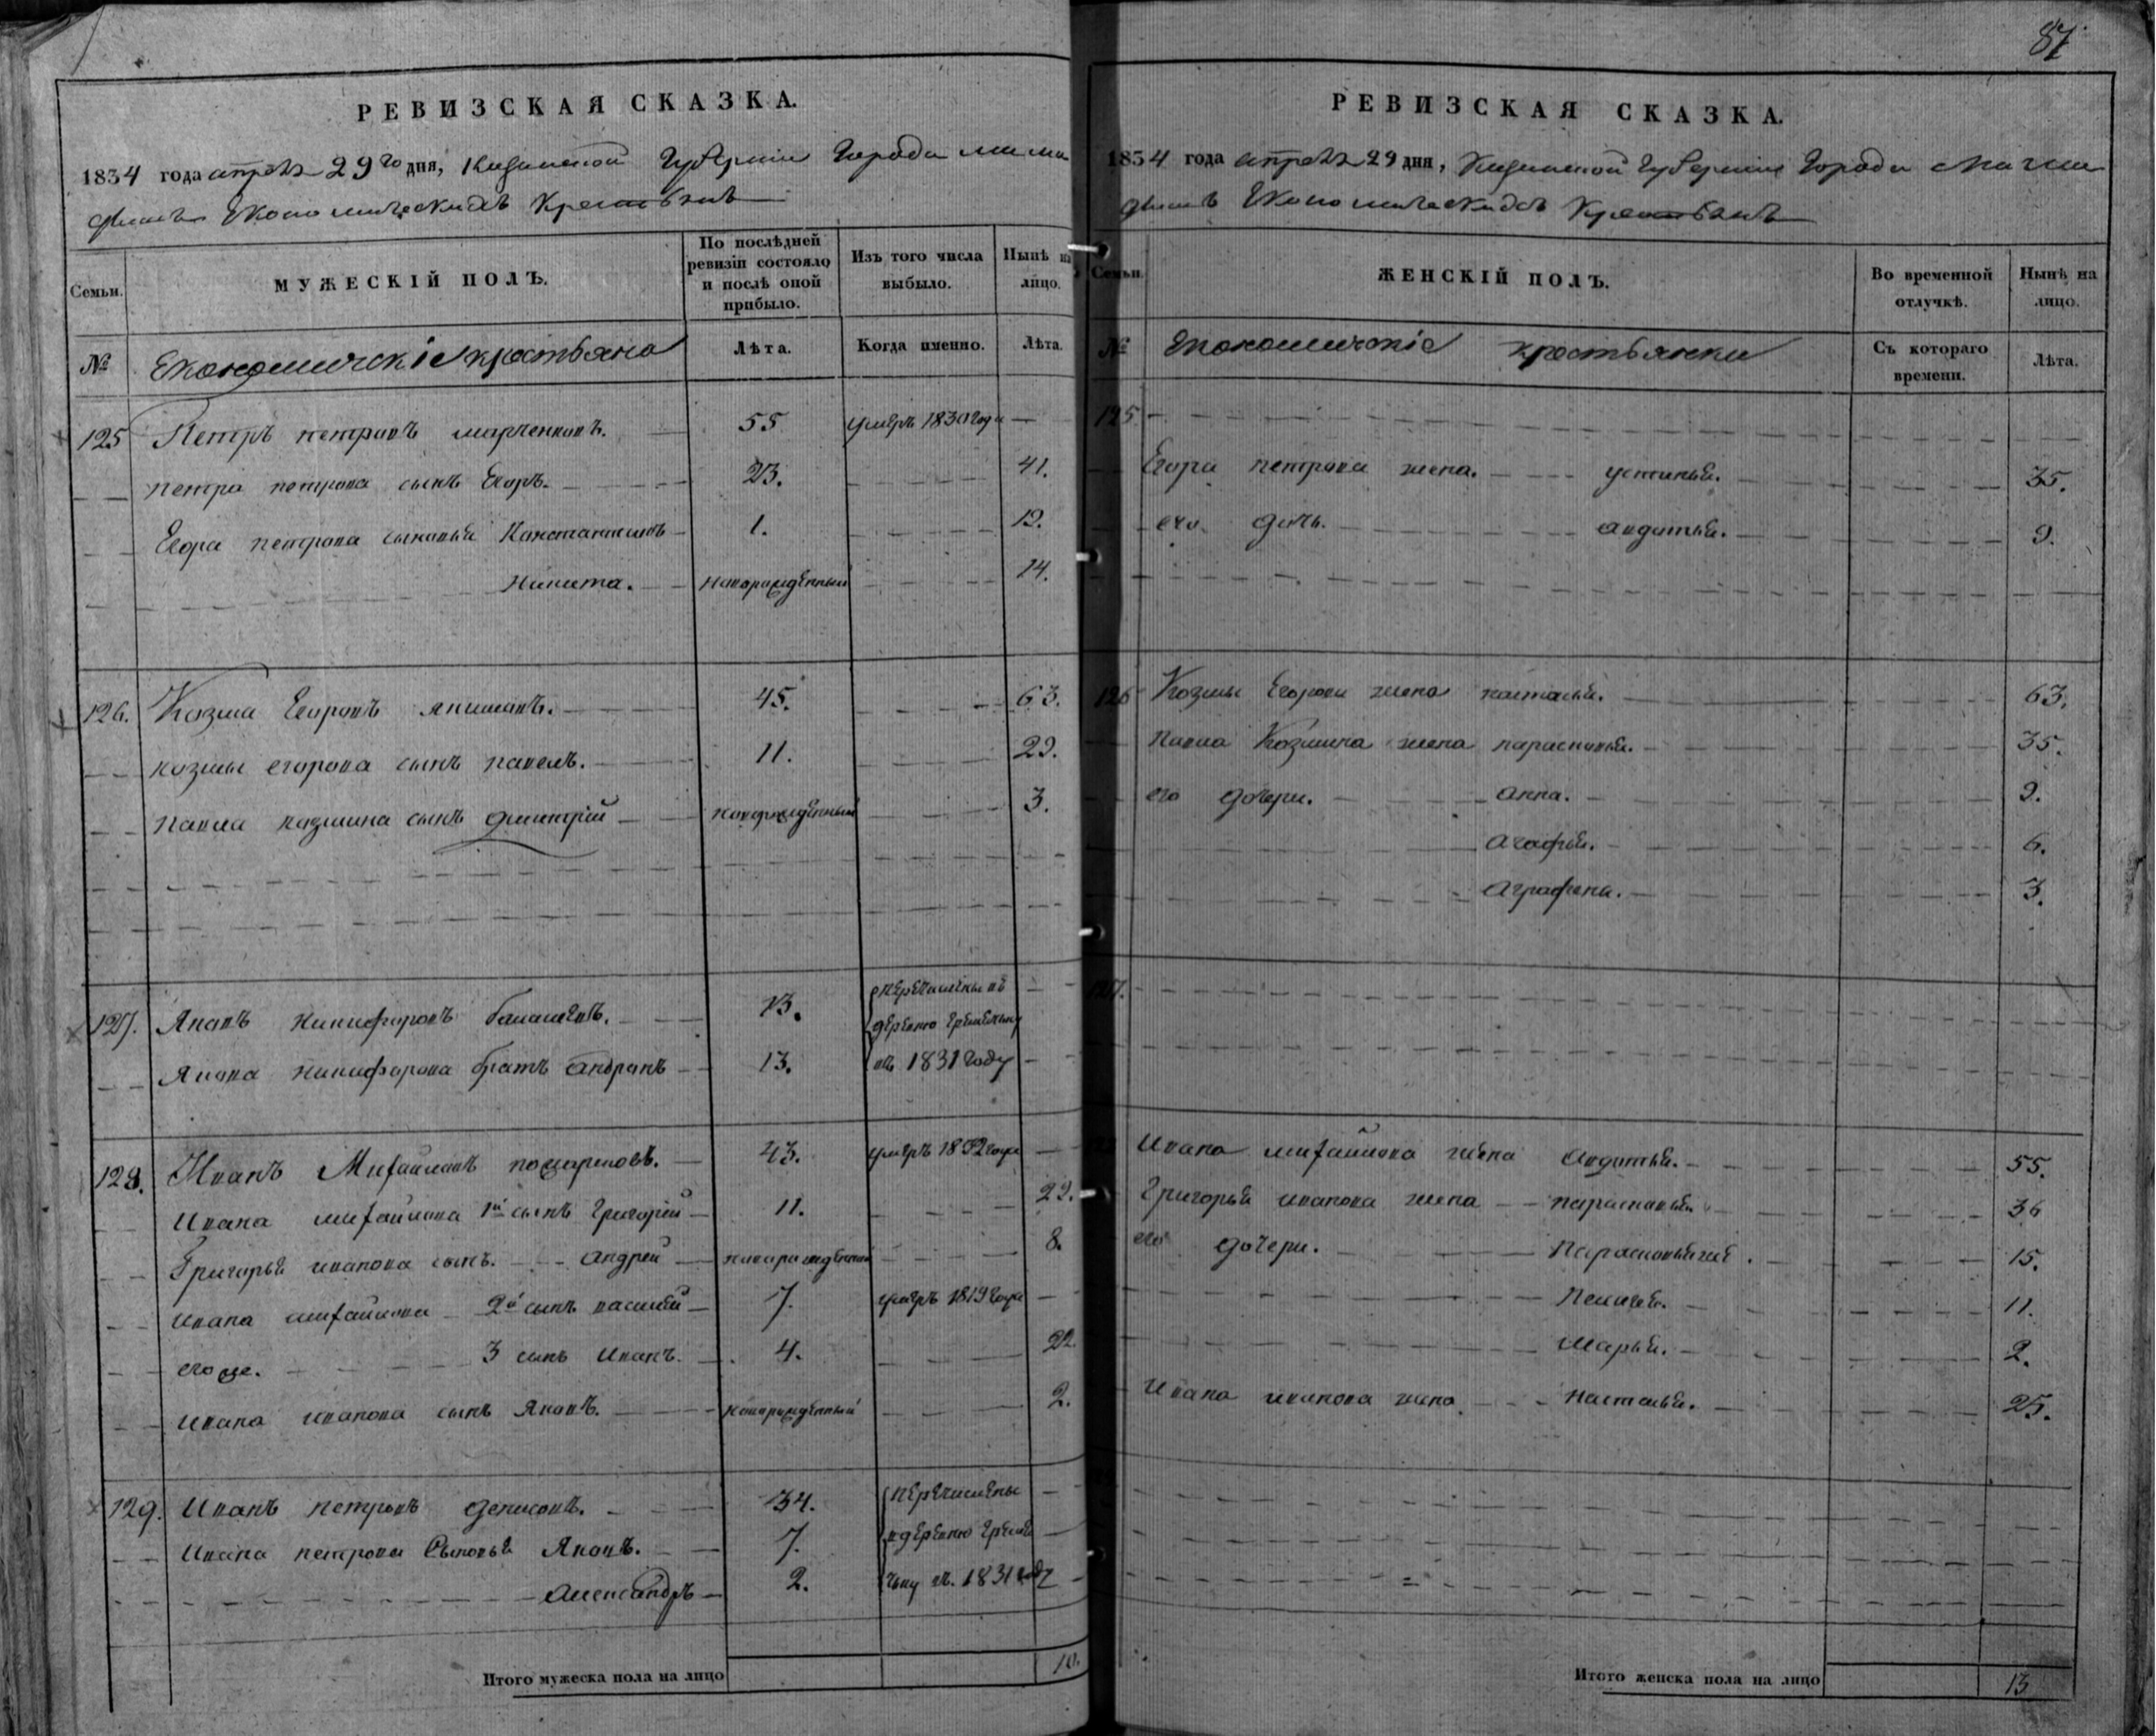 87.
РЕВИЗСКАЯ СКАЗКА.
1834 года апреля 29го дня, Казанской Губернии Города Мама
дышъ Економическихъ Крестьянъ
Семьи.
МУЖЕСКІЙ ПОЛЪ.
По послѣдней ревизіи состояло и послѣ оной прибыло.
Изъ того числа выбыло.
Нынѣ на лицо.
№
Економическіе крестьяне
Лѣта.
Когда именно.
Лѣта.
125 Петръ петровъ марченковъ. 55 умеръ 1830 года —
петра петрова сынъ Егоръ. 23. 41.
Егора петрова сыновья Константинъ 1. 19.
никита. новорожденный 14.
126. Козма Егоровъ якимовъ. 45. 63.
козмы егорова сынъ павелъ. 11. 29.
павла козмина сынъ дмитрій новорожденный 3.
127. Яковъ никифоровъ 13. перечислены въ
деревню
Якова никифорова братъ андрѣянъ 13. въ 1831 году
128. Иванъ Михайловъ 43. умеръ 1832 года —
Ивана михайлова 1й сынъ Григорій 11. 29.
Григорья иванова сынъ. андрей новорожденный 8.
ивана михайлова 2й сынъ василей 7. умеръ 1819 года —
его же. 3 сынъ иванъ. 4. 22.
ивана иванова сынъ яковъ. новорожденный 2.
129. Иванъ петровъ денисовъ. 34. перечислены —
Ивана петрова Сыновья Яковъ. 7. вдеревню
александръ 2. въ. 1831 году
Итого мужеска пола на лицо 10.
РЕВИЗСКАЯ СКАЗКА.
1834 года апреля 29 дня, Казанской Губернии Города Мама
дышъ Економическихъ Крестьянъ
Семьи.
ЖЕНСКІЙ ПОЛЪ.
Во временной отлучкѣ.
Нынѣ на лицо.
№
Економическіе крестьянки
Съ котораго времени.
Лѣта.
125
Егора петрова жена. устинья. 35.
его дочь. авдотья. 9.
126 Козмы Егорова жена наталья. 63.
Павла Козмина жена парасковья. 35.
его дочери. анна. 9.
агафья. 6.
аграфена. 3.
127.
Ивана михайлова жена авдотья. 55.
Григорья иванова жена парасковья 36
его дочери. Парасковья 15.
Пелагея. 11.
марья. 2.
Ивана иванова жена наталья. 25.
Итого женска пола на лицо 13